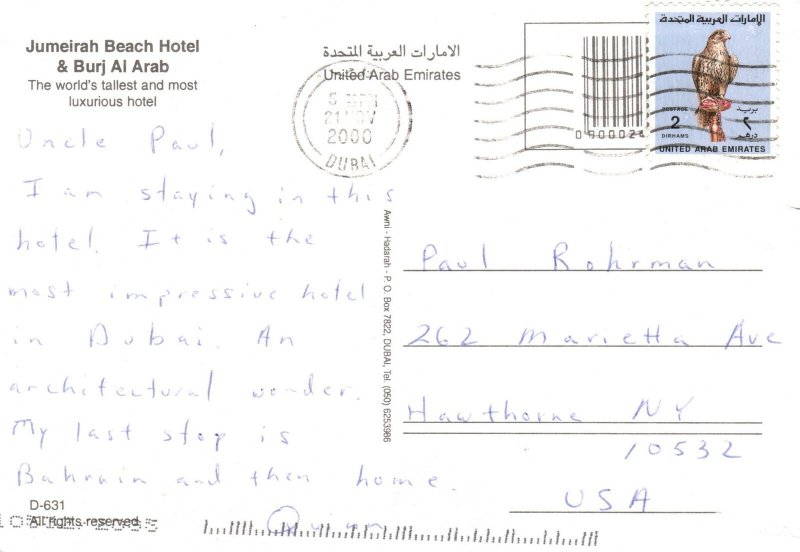 Jumeirah Beach Hotel
& Burj Al Arab
The world's tallest and most
luxurious hotel
الامارات العربية المتحدة
United Arab Emirates
21 NOV
2000
DUBAI
0000024
الإمارات العربية المتحدة
POSTAGE
2
DIRHAMS
بريد
٢
درهم
UNITED ARAB EMIRATES
Uncle Paul,
I am staying in this
hotel. It is the
most impressive hotel
in Dubai. An
architectural wonder.
My last stop is
Bahrain and then home.
Awni - Hadarah - P. O. Box 7822, DUBAI, Tel. (050) 6253986
Paul Rohrman
262 Marietta Ave
Hawthorne NY
10532
USA
D-631
All rights reserved